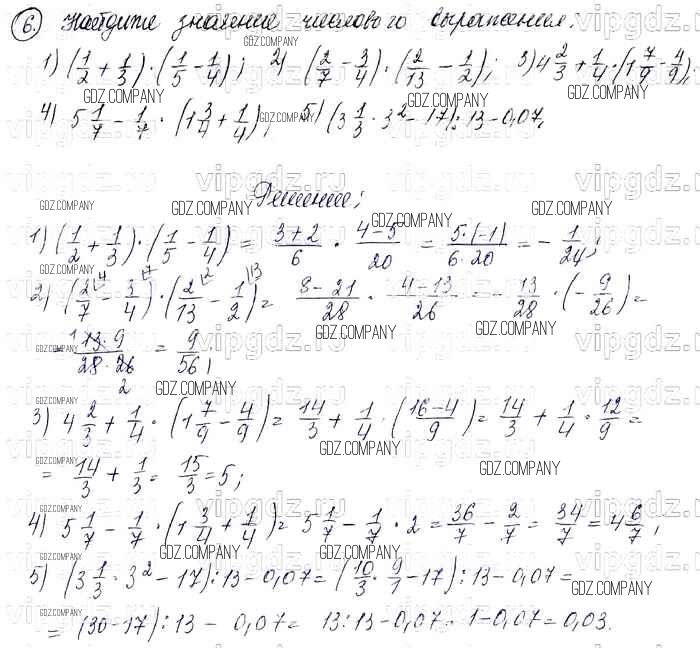 6. Найдите значение числового выражения:
1) (1/2 + 1/3) · (1/5 - 1/4); 2) (2/7 - 3/4) · (2/13 - 1/2); 3) 4 2/3 + 1/4 · (1 7/9 - 4/9);
4) 5 1/7 - 1/7 · (1 3/4 + 1/4); 5) (3 1/3 · 3² - 17) : 13 - 0,07.
Решение:
1) (1/2 + 1/3) · (1/5 - 1/4) = (3+2)/6 · (4-5)/20 = (5·(-1))/(6·20) = - 1/24;
2) (2/7 - 3/4) · (2/13 - 1/2) = (8-21)/28 · (4-13)/26 = - 13/28 · (- 9/26) =
= (13·9)/(28·26) = 9/56;
3) 4 2/3 + 1/4 · (1 7/9 - 4/9) = 14/3 + 1/4 · ((16-4)/9) = 14/3 + 1/4 · 12/9 =
= 14/3 + 1/3 = 15/3 = 5;
4) 5 1/7 - 1/7 · (1 3/4 + 1/4) = 5 1/7 - 1/7 · 2 = 36/7 - 2/7 = 34/7 = 4 6/7;
5) (3 1/3 · 3² - 17) : 13 - 0,07 = (10/3 · 9/1 - 17) : 13 - 0,07 =
= (30-17) : 13 - 0,07 = 13 : 13 - 0,07 = 1 - 0,07 = 0,03.
GDZ.COMPANY
vipgdz.ru